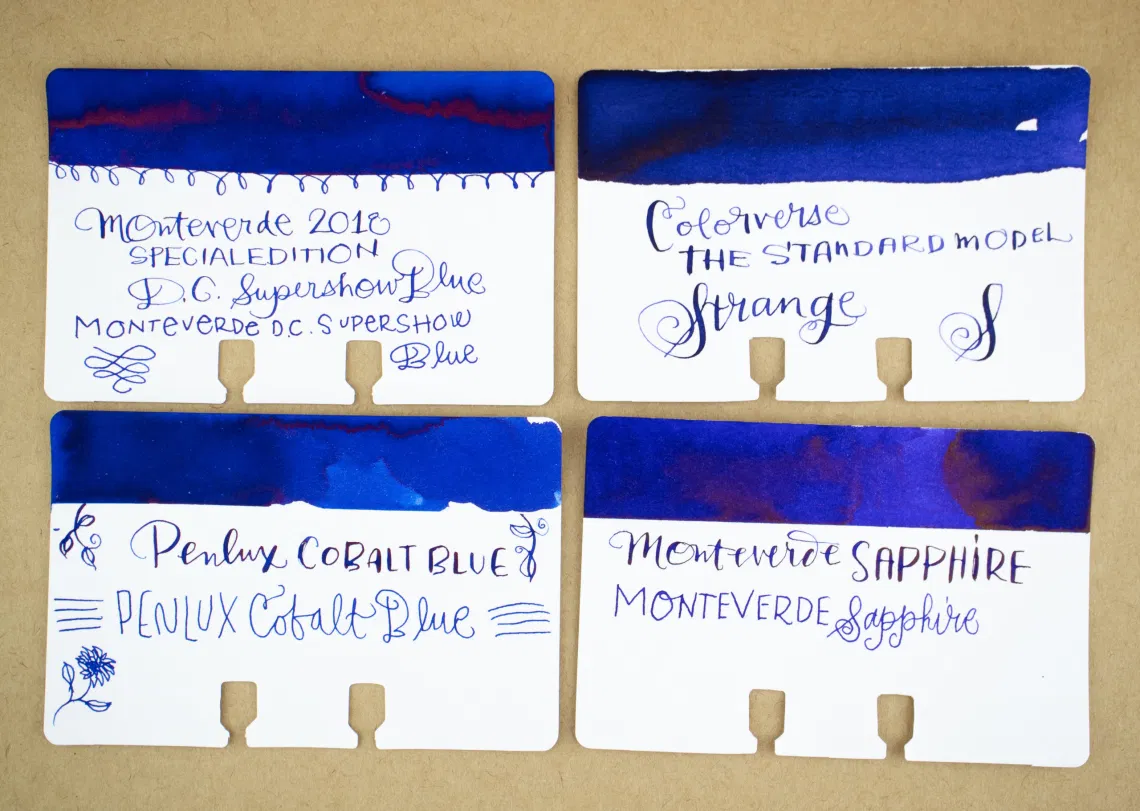 Monteverde 2018
SPECIAL EDITION
D.C. Supershow Blue
MONTEVERDE D.C. SUPERSHOW
Blue
Colorverse
THE STANDARD MODEL
Strange S
Penlux COBALT BLUE
PENLUX Cobalt Blue
Monteverde SAPPHIRE
MONTEVERDE Sapphire